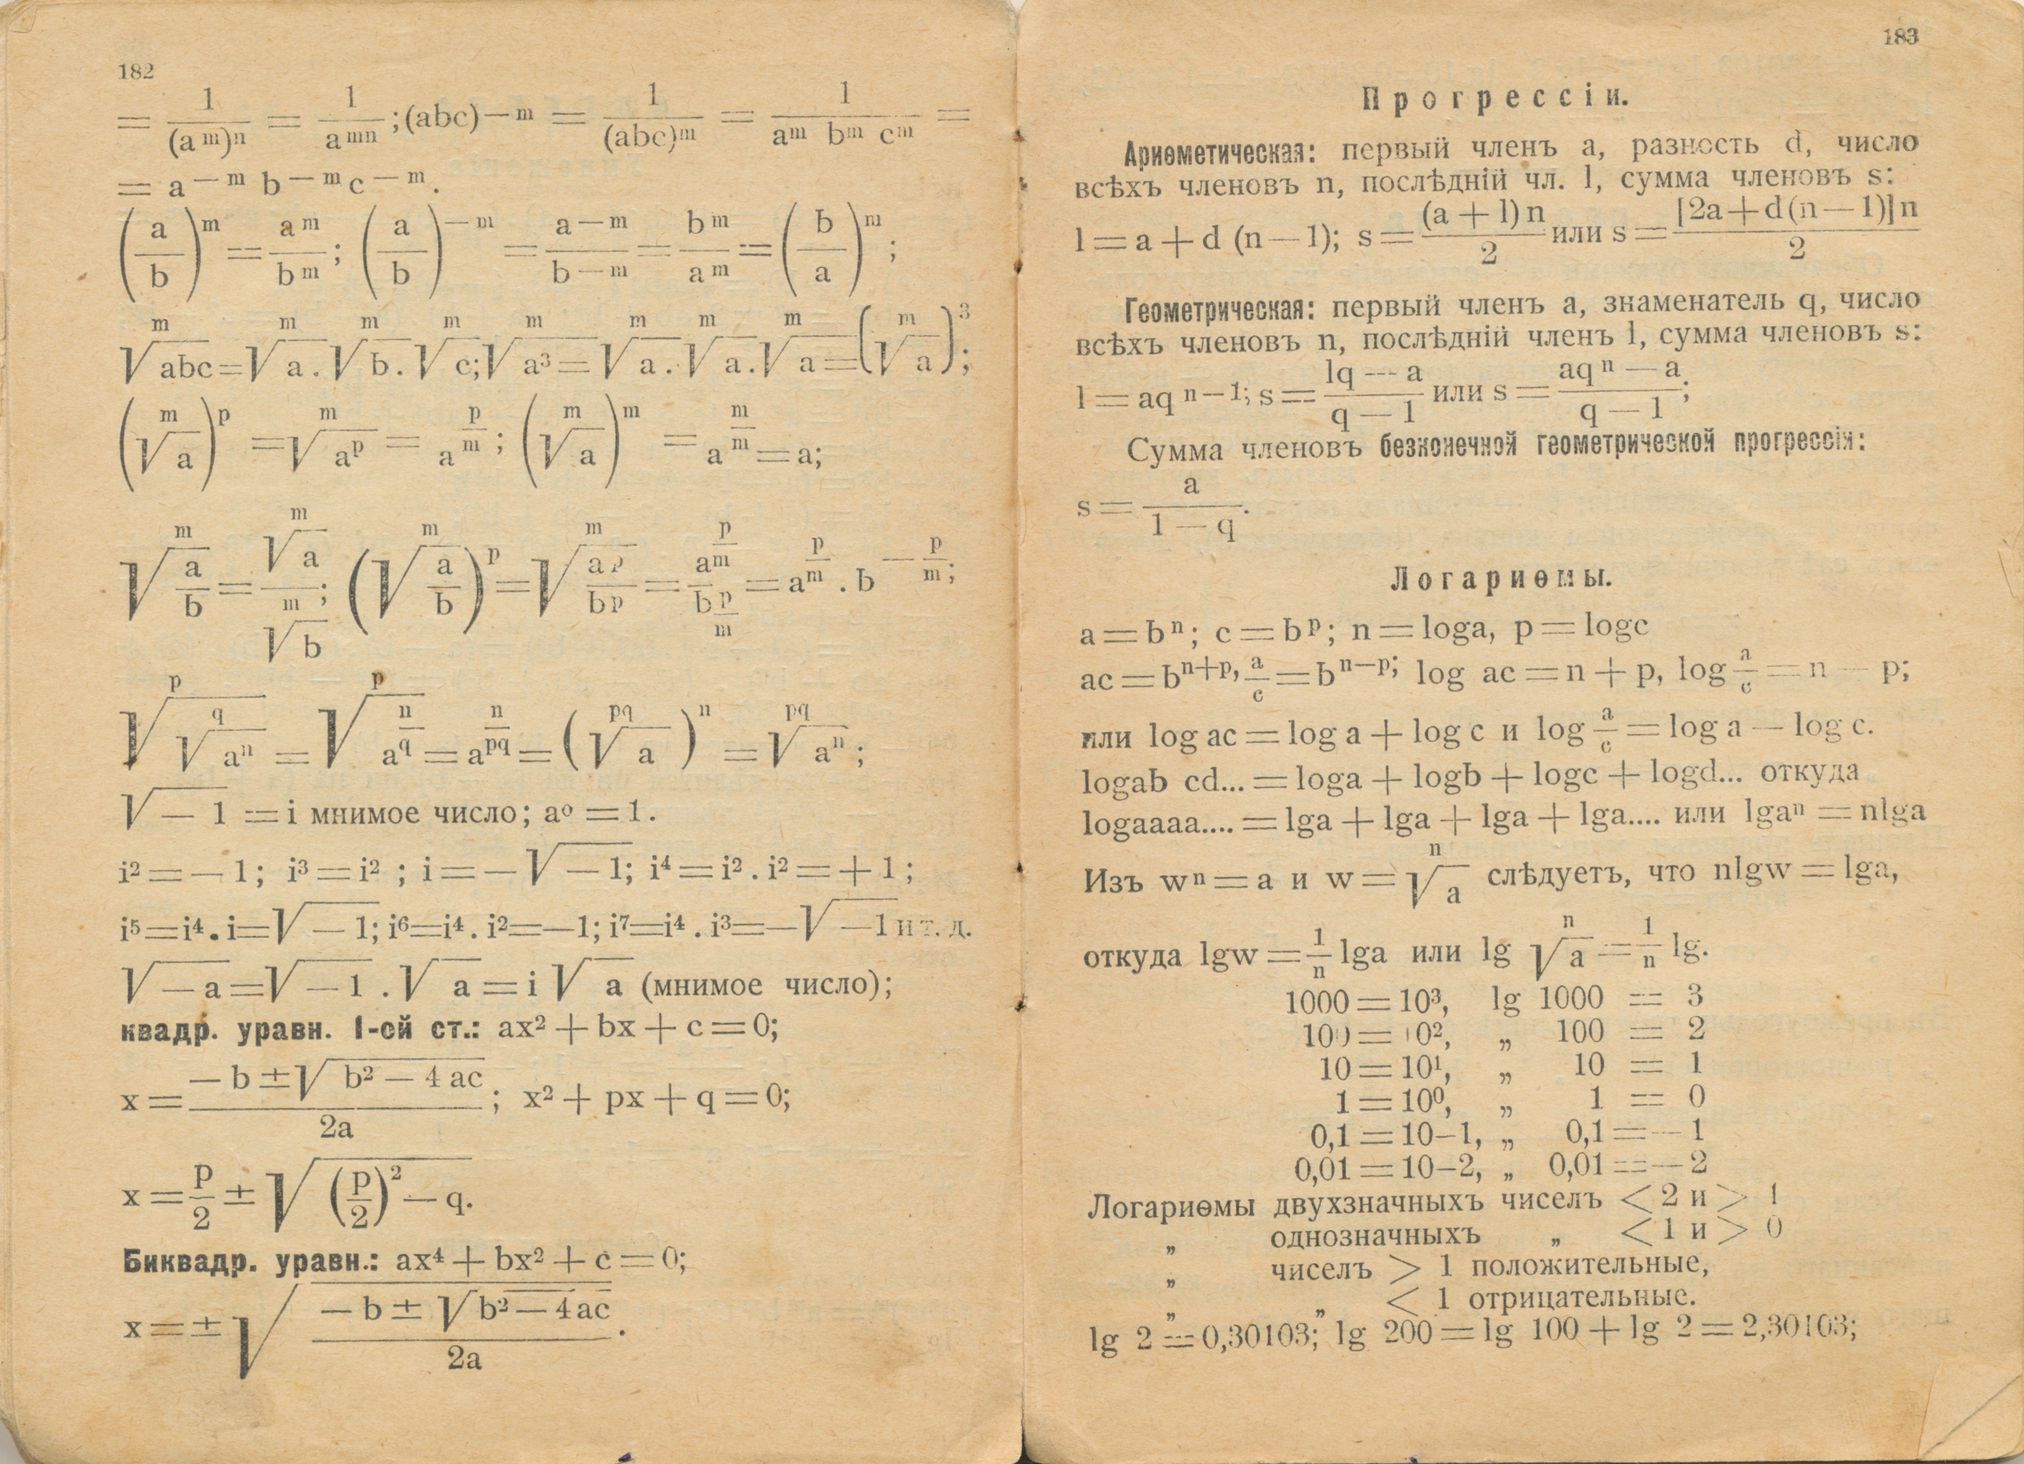 182
= 1/(a^m)^n = 1/a^mn ; (abc)—^m = 1/(abc)^m = 1/a^m b^m c^m =
= a^—m b^—m c^—m.
(a/b)^m = a^m/b^m ; (a/b)^—m = a^—m/b^—m = b^m/a^m = (b/a)^m ;
^m√abc = ^m√a . ^m√b . ^m√c; ^m√a³ = ^m√a . ^m√a . ^m√a = (^m√a)³ ;
(^m√a)^p = ^m√a^p = a^(p/m) ; (^m√a)^m = a^(m/m) = a;
^m√(a/b) = ^m√a/^m√b ; (^m√(a/b))^p = ^m√(a^p/b^p) = a^(p/m)/b^(p/m) = a^(p/m) . b^—(p/m) ;
^p√(^q√a^n) = ^p√(a^(n/q)) = a^(n/pq) = (^pq√a)^n = ^pq√a^n ;
√—1 = i мнимое число; a⁰ = 1.
i² = — 1; i³ = i² ; i = — √—1; i⁴ = i² . i² = + 1 ;
i⁵ = i⁴ . i = √—1; i⁶ = i⁴ . i² = —1; i⁷ = i⁴ . i³ = —√—1 и т. д.
√—a = √—1 . √a = i √a (мнимое число);
квадр. уравн. I-ой ст.: ax² + bx + c = 0;
x = (— b ± √b² — 4 ac)/2a ; x² + px + q = 0;
x = p/2 ± √(p/2)² — q.
Биквадр. уравн.: ax⁴ + bx² + c = 0;
x = ± √((— b ± √b² — 4ac)/2a) .
183
Прогрессіи.
Ариѳметическая: первый членъ a, разность d, число
всѣхъ членовъ n, послѣдній чл. l, сумма членовъ s:
l = a + d (n — 1); s = (a + l) n/2 или s = [2a + d (n — 1)] n/2
Геометрическая: первый членъ a, знаменатель q, число
всѣхъ членовъ n, послѣдній членъ l, сумма членовъ s:
l = aq^n—1; s = (lq — a)/(q — 1) или s = (aq^n — a)/(q — 1) ;
Сумма членовъ безконечной геометрической прогрессіи:
s = a/(1 — q) .
Логариѳмы.
a = b^n ; c = b^p ; n = loga, p = logc
ac = b^n+p, a/c = b^n—p; log ac = n + p, log a/c = n — p;
или log ac = log a + log c и log a/c = log a — log c.
logab cd... = loga + logb + logc + logd... откуда
logaaaa.... = lga + lga + lga + lga.... или lga^n = nlga
Изъ w^n = a и w = ^n√a слѣдуетъ, что nlgw = lga,
откуда lgw = 1/n lga или lg ^n√a = 1/n lg.
1000 = 10³, lg 1000 = 3
100 = 10², „ 100 = 2
10 = 10¹, „ 10 = 1
1 = 10⁰, „ 1 = 0
0,1 = 10–1, „ 0,1 = — 1
0,01 = 10–2, „ 0,01 = — 2
Логариѳмы двухзначныхъ чиселъ < 2 и > 1
„ однозначныхъ „ < 1 и > 0
„ чиселъ > 1 положительные,
„ „ < 1 отрицательные.
lg 2 = 0,30103; lg 200 = lg 100 + lg 2 = 2,30103;